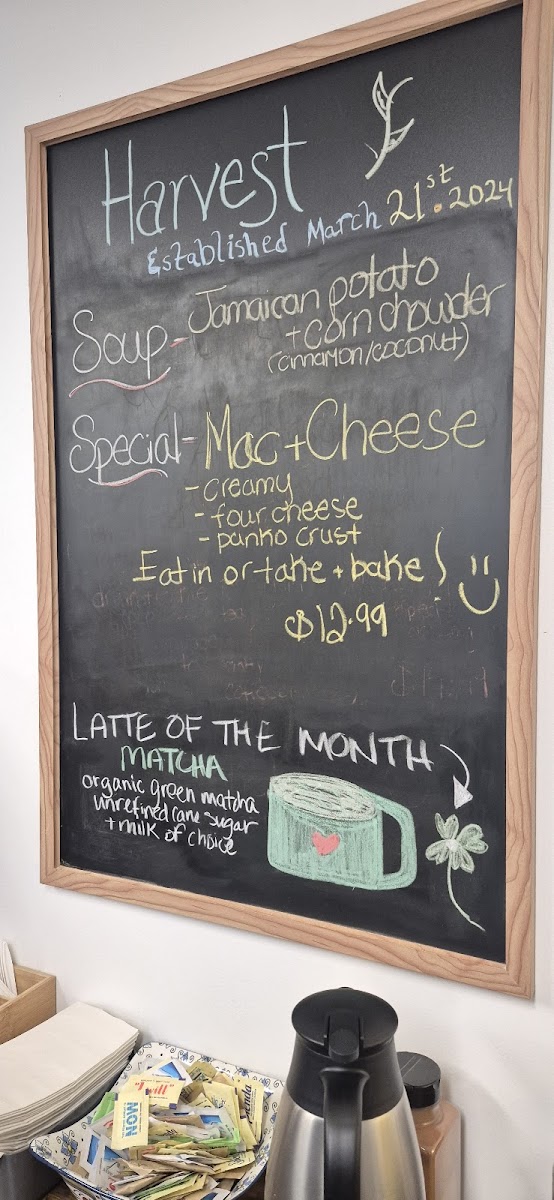 Harvest
Established March 21st. 2024
Soup - Jamaican potato
+ corn chowder
(cinnamon/coconut)
Special - Mac + Cheese
- creamy
- four cheese
- panko crust
Eat in or take + bake! :)
$12.99
LATTE OF THE MONTH
MATCHA
organic green matcha
unrefined cane sugar
+ milk of choice